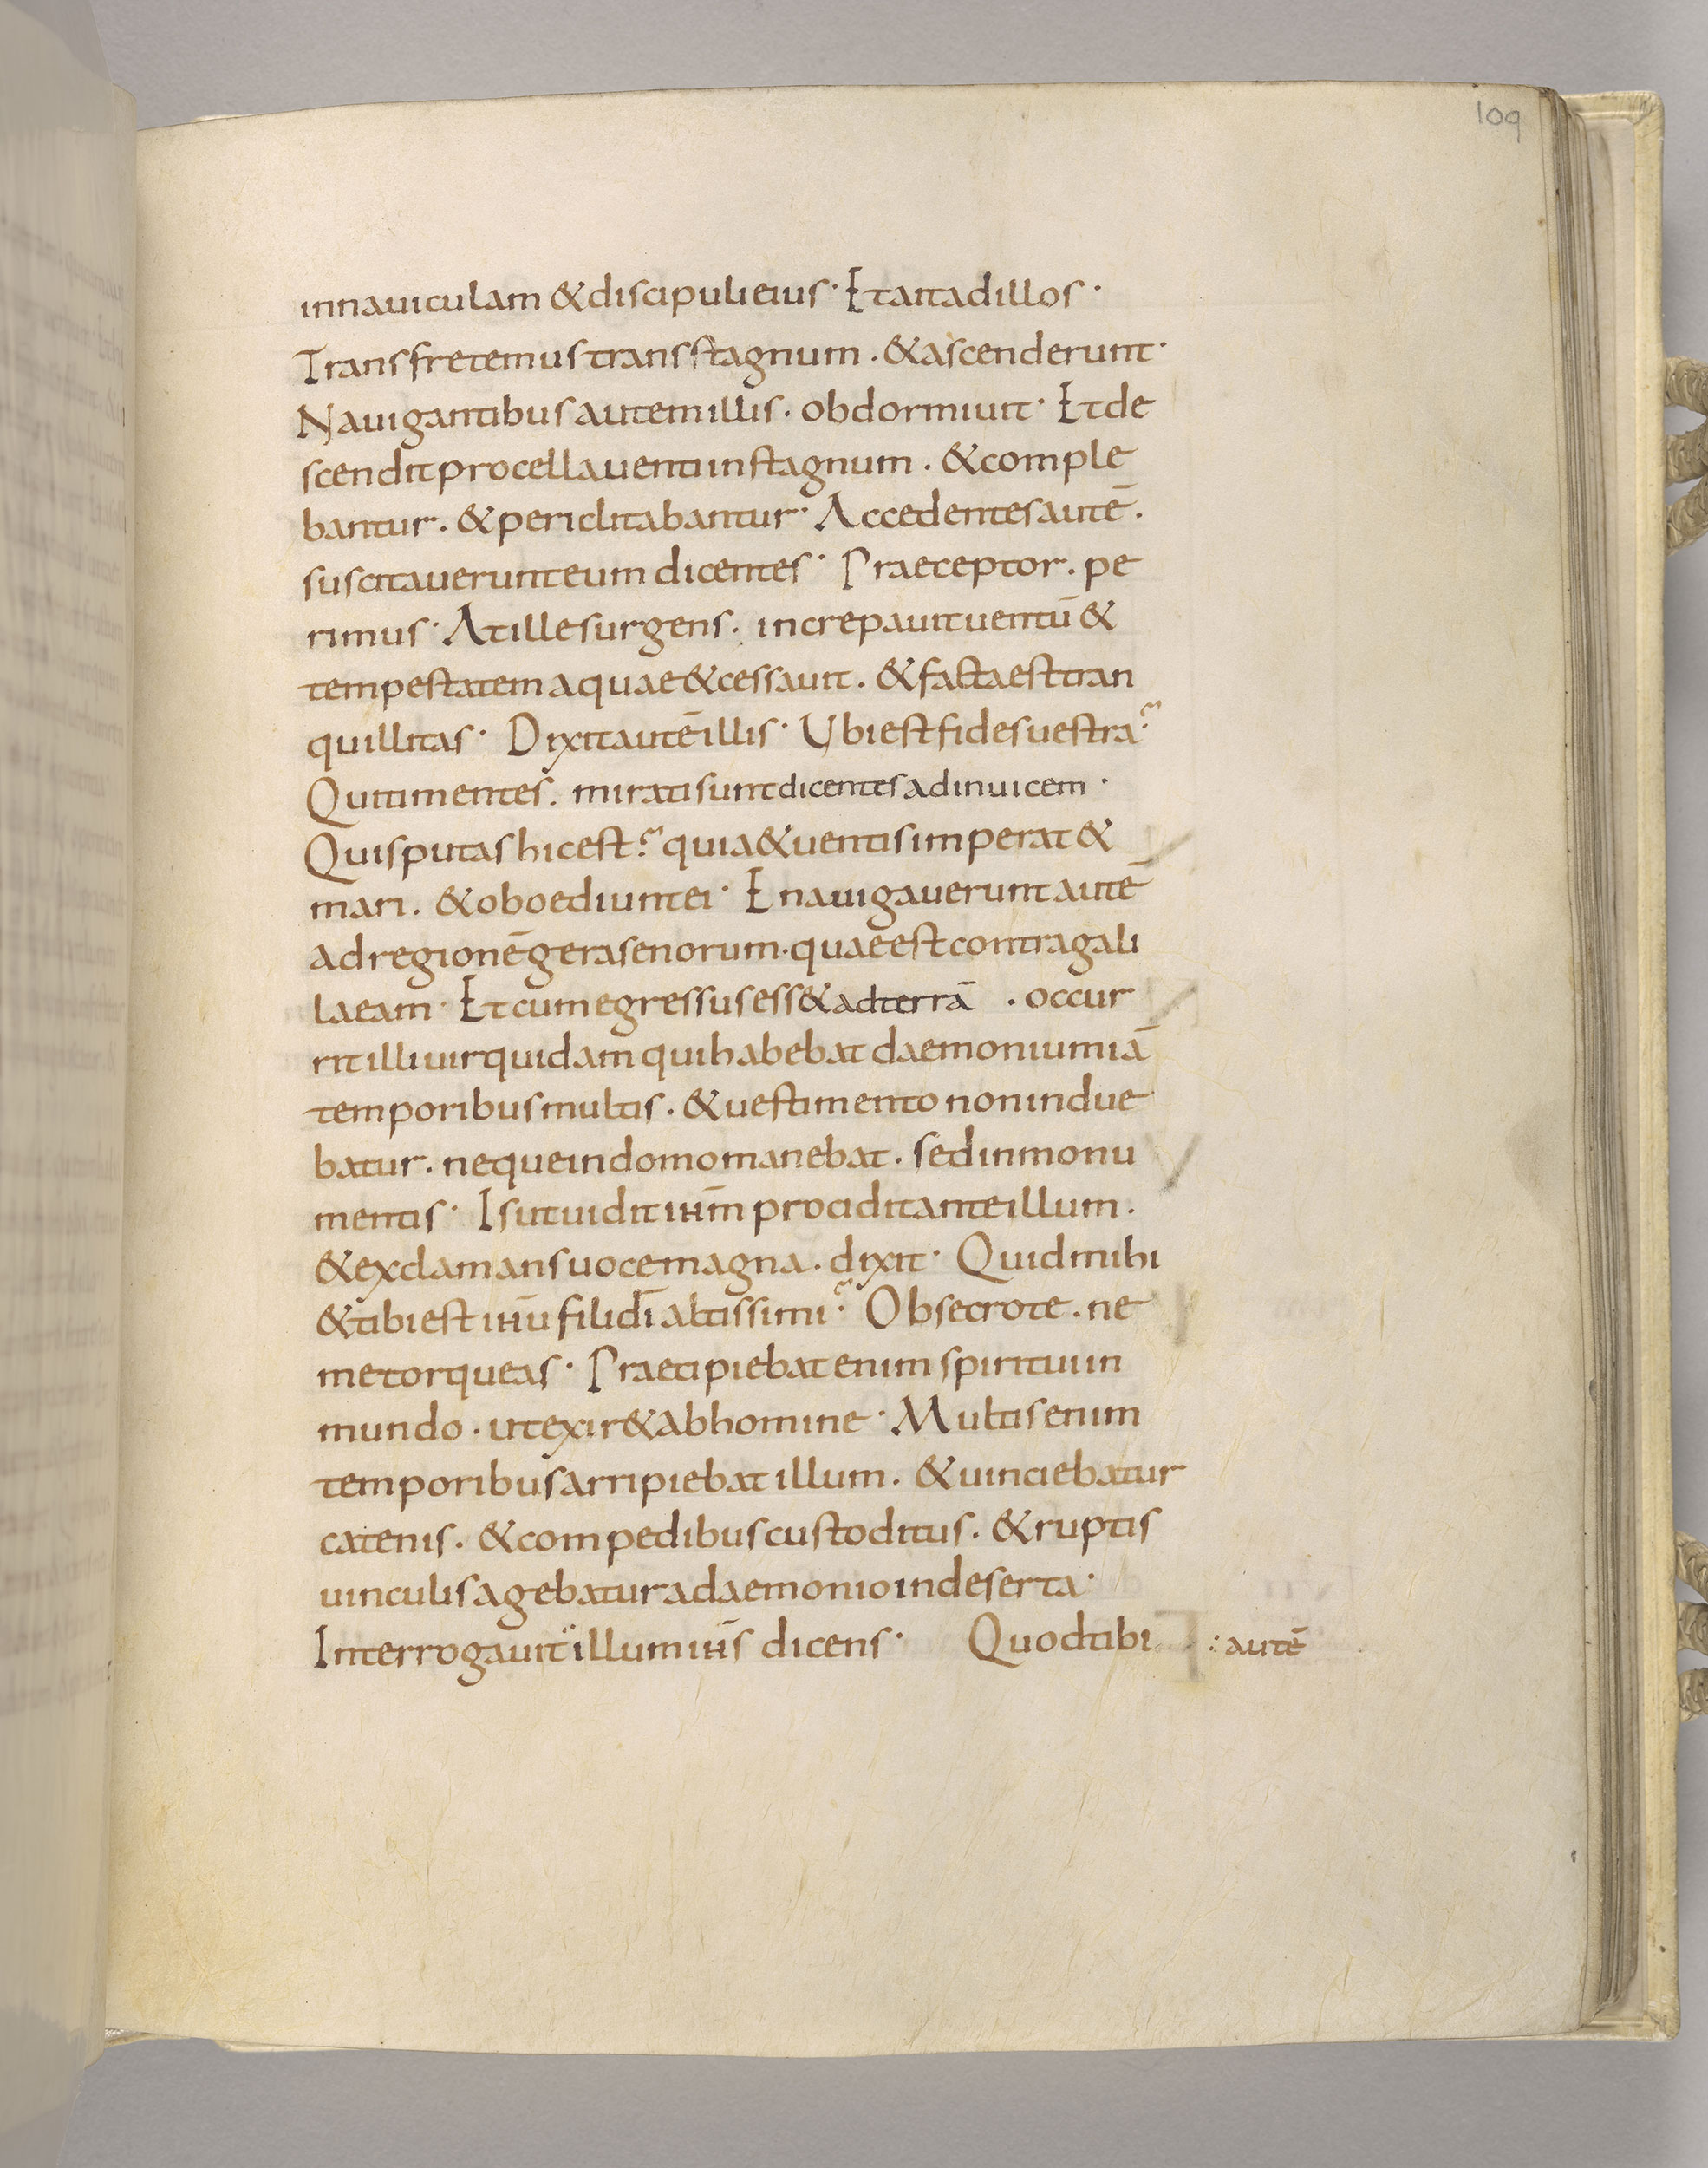 109
innauiculam &discipulieius· Etaitadillos·
Transfretemustransstagnum. &ascenderunt·
Nauigantibusautemillis. obdormiuit· Etde
scenditprocellauentiinstagnum. &comple
bantur. &periclitabantur· Accedentesautē.
suscitauerunteum dicentes· Praeceptor. pe
rimus· Atillesurgens. increpauituentū &
tempestatem aquae&cessauit. &factaesttran
quillitas· Dixitautēillis· Ubiestfidesuestra?
Quitimentes. miratisuntdicentesadinuicem·
Quisputashicest? quia&uentisimperat &
mari. &oboediuntei· Enauigaueruntautē
adregionēgerasenorum.quaeestcontragali
laeam· Etcumegressusess&adterrā . occur
rit illi uirquidam quihabebat daemoniumiā
temporibusmultis. &uestimento nonindue
batur. nequeindomomanebat. sedinmonu
mentis· Isutuidit ihm̄ prociditanteillum.
&exclamansuocemagna. dixit· Quidmihi
&tibiest ihū filidī altissimi? Obsecrote. ne
metorqueas· Praecipiebatenim spirituiin
mundo. utexir&abhomine· Multisenim
temporibusarripiebat illum. &uinciebatur
catenis. &compedibuscustoditus. &ruptis
uinculisagebaturadaemonioindeserta·
Interrogauit illum ihs̄ dicens· Quodtibi :autē